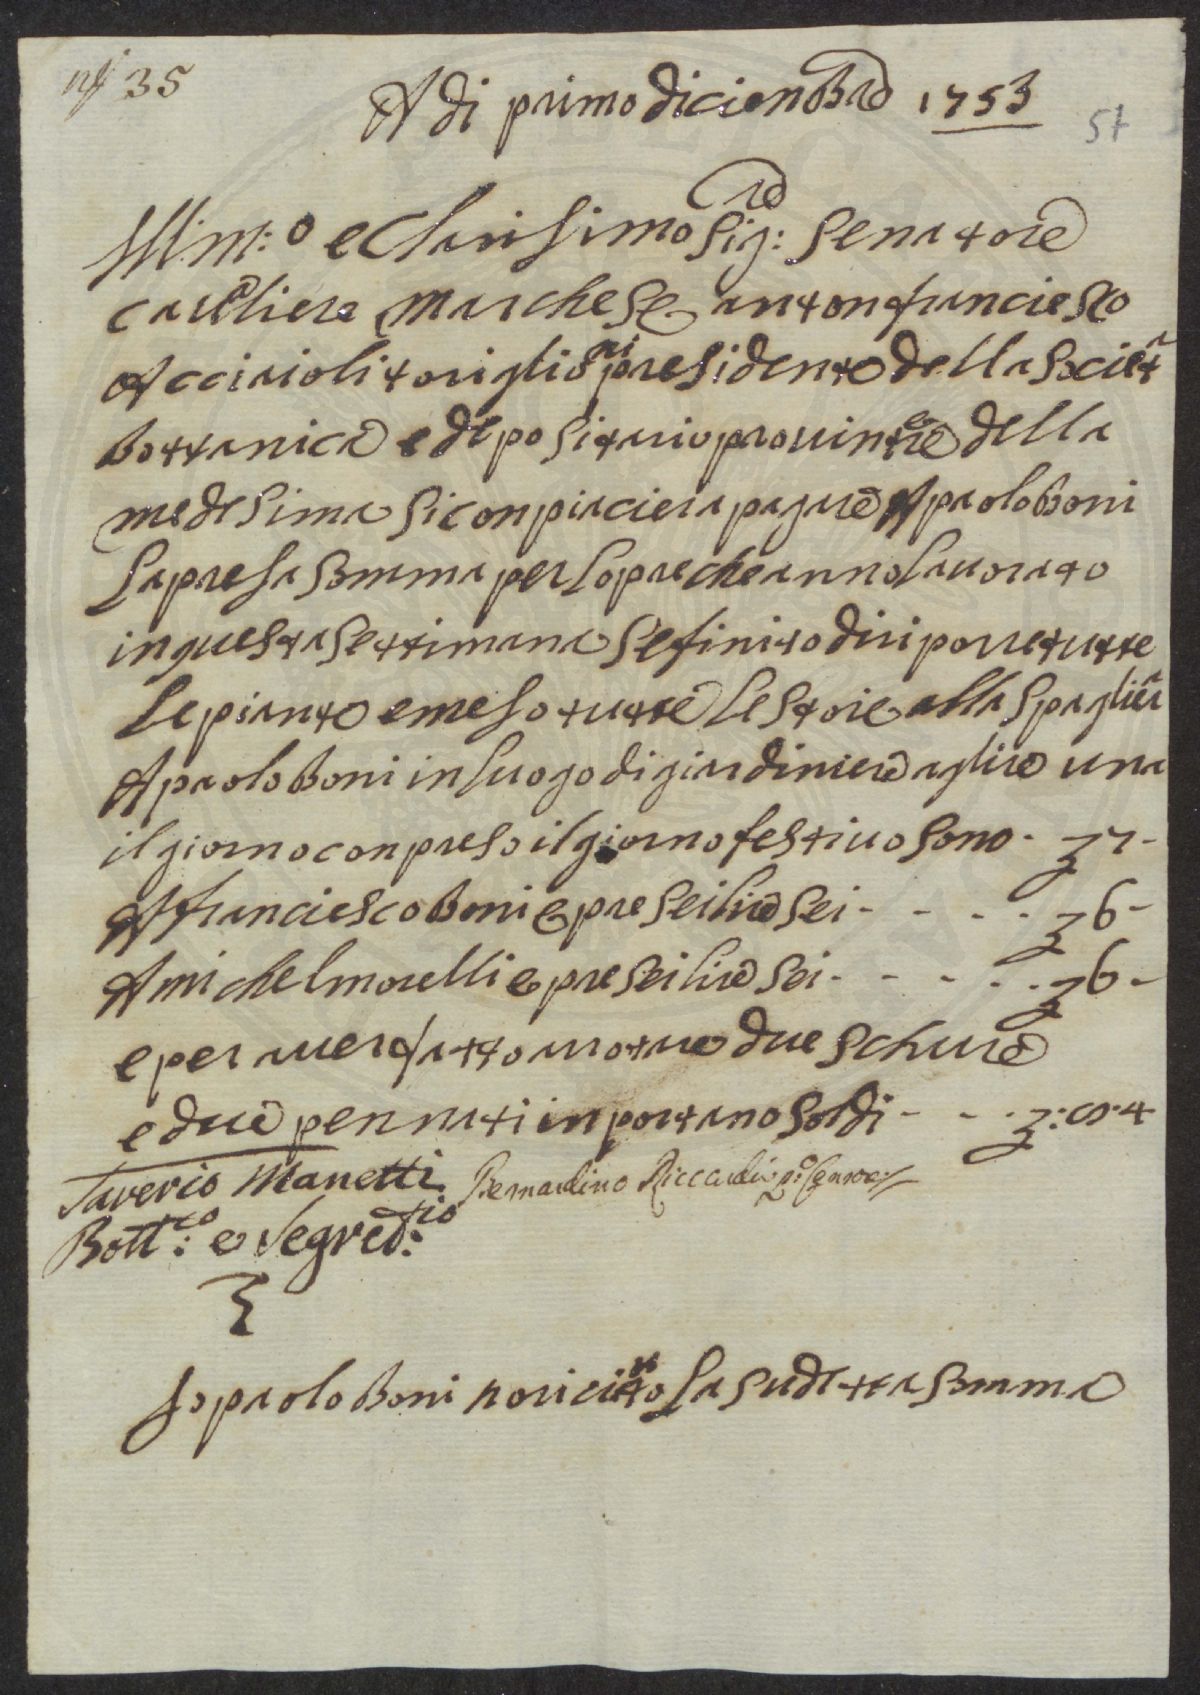 nº 35
A di primo diciembre 1753
57
Illm:o e Clarisimo Sig:re Senatore
cavaliere marchese antonfranciesco
Acciaioli toriglioni presidente della Societa
Bottanica e dipositario provintiale della
medesima Si conpiaciera pagare A paolo Boni
La presa Somma per Lopre che anno Lavorato
in questa Settimana Se finito di riporre tutte
Le piante e meso tutte Le Stoie alla Spagliera
A paolo Boni in Luogo di giardiniere a lire una
il giorno conpreso il giorno festivo Sono - 7 -
A franciesco Boni opre Sei lire Sei - - - - 6 -
A michel morelli opre Sei lire Sei - - - - 6 -
e per aver fatto arotare due Schure
e due pennati inportano Soldi - - - : 4
Saverio Manetti Bernardino Riccardi
Bott:co e Segret:rio
Io paolo Boni o riciuto La Sudetta Somma